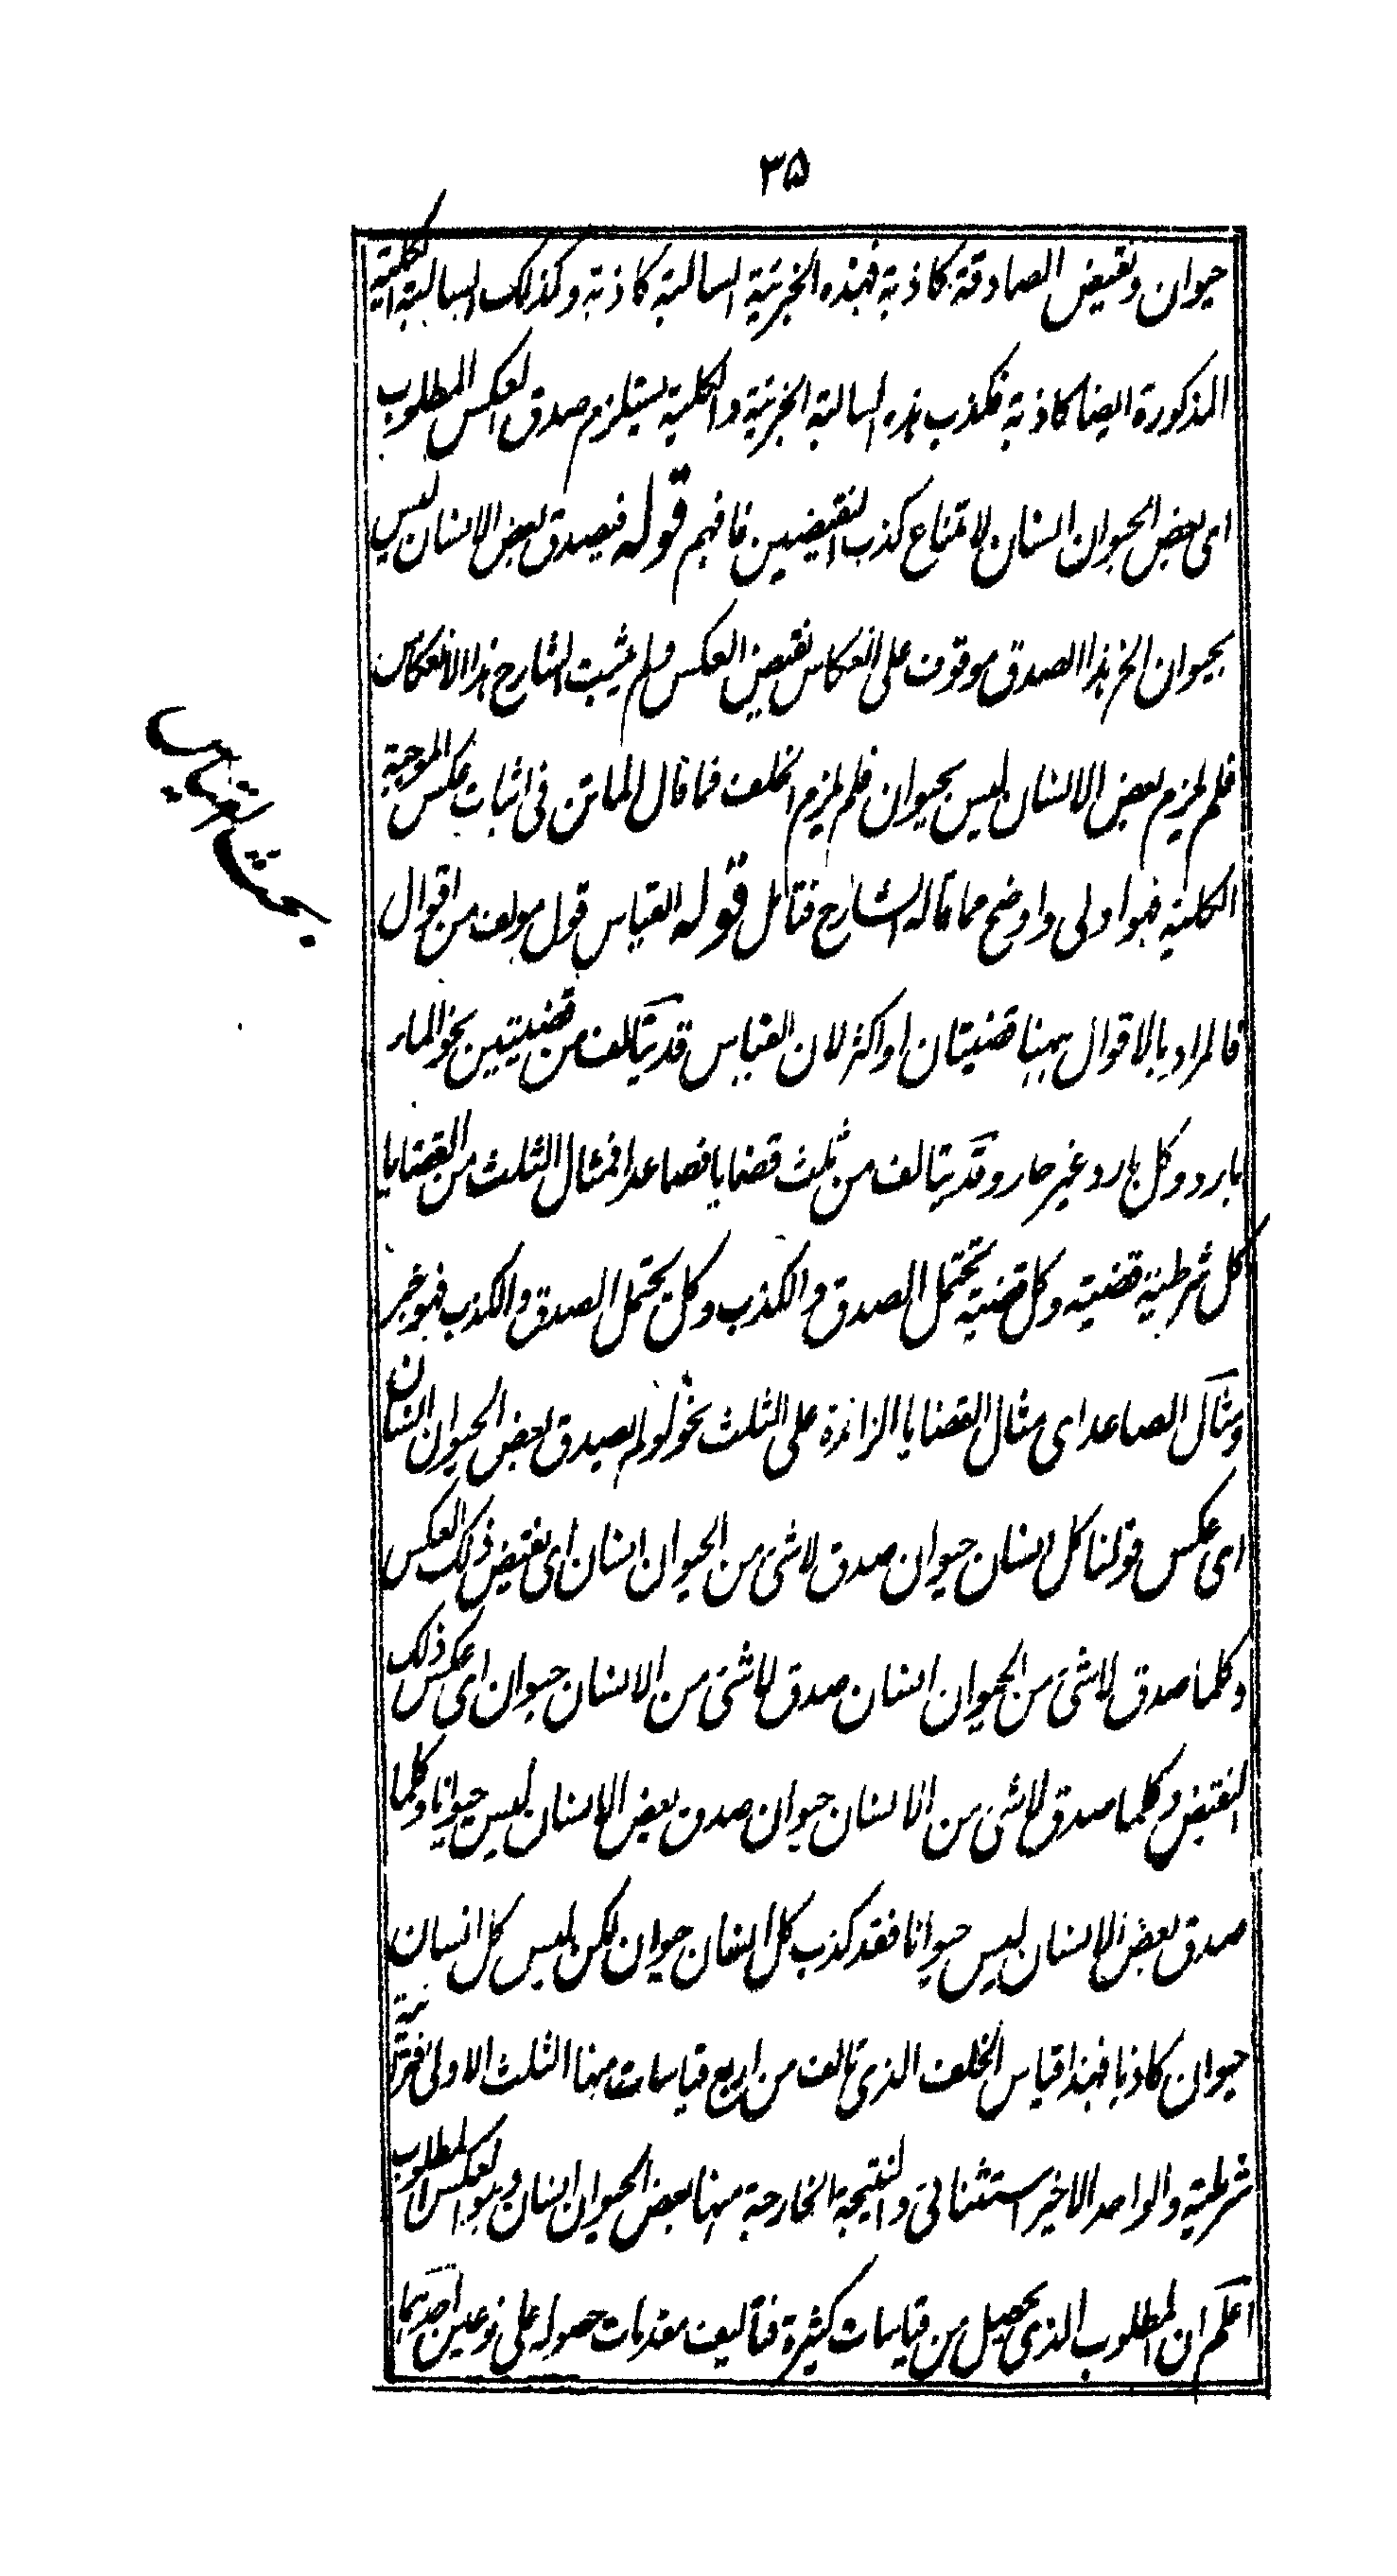 ٣۵
حيوان ونقيض الصادقة كاذبة فهذه الجزئية السالبة كاذبة وكذلك السالبة الكلية
المذكورة ايضا كاذبة فكذب هذه السالبة الجزئية والكلية يستلزم صدق العكس المطلوب
اى بعض الحيوان انسان لامتناع كذب النقيضين فافهم قوله فيصدق بعض الانسان ليس
بحيوان الخ هذا الصدق موقوف على انعكاس نقيض العكس ولم يثبت الشارح هذا الانعكاس
فلم يلزم بعض الانسان ليس بحيوان فلم يلزم الخلف فما قال الماتن فى اثبات عكس الموجبة
الكلية فهو اولى واوضح مما قاله الشارح فتامل قوله القياس قول مولف من اقوال
بحث القياس
فالمراد بالاقوال ههنا قضيتان او اكثر لان القياس قد يتالف من قضيتين نحو الماء
بارد وكل بارد غير حار وقد يتالف من ثلث قضايا فصاعدا فمثال الثلث من القضايا
كل شرطية قضية وكل قضية تحتمل الصدق والكذب وكل يحتمل الصدق والكذب فهو خبر
ومثال الصاعد اى مثال القضايا الزائدة على الثلث نحو لو لم يصدق بعض الحيوان انسان
اى عكس قولنا كل انسان حيوان صدق لاشئ من الحيوان انسان اى نقيض ذلك العكس
وكلما صدق لاشئ من الحيوان انسان صدق لاشئ من الانسان حيوان اى عكس ذلك
النقيض وكلما صدق لاشئ من الانسان حيوان صدق بعض الانسان ليس حيوانا وكلما
صدق بعض الانسان ليس حيوانا فقد كذب كل انسان حيوان لكن ليس كل انسان
حيوان كاذبا فهذا قياس الخلف الذى تالف من اربع قياسات منها الثلث الاولى اقترانية
شرطية والواحد الاخير استثنائى والنتيجة الخارجة منها بعض الحيوان انسان وهو العكس المطلوب
اعلم ان المطلوب الذى يحصل من قياسات كثيرة فتاليف مقدمات حصوله على نوعين احدهما